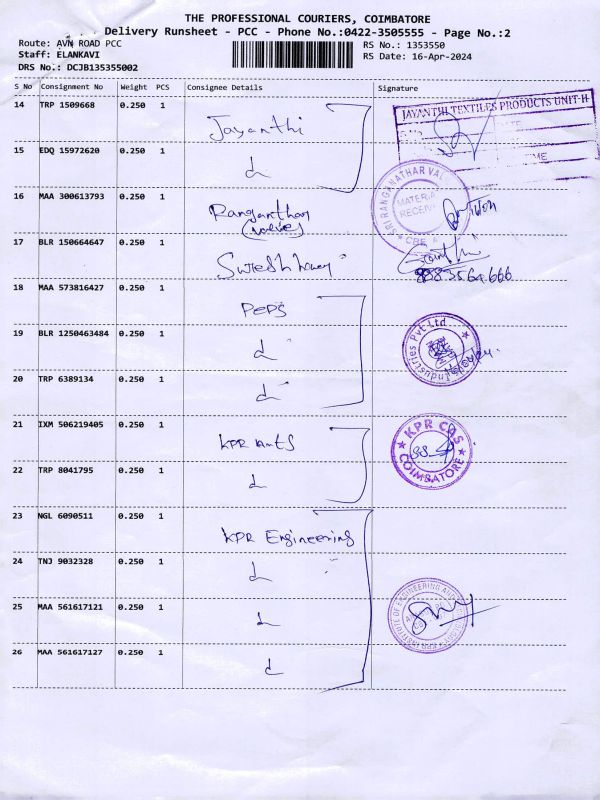 THE PROFESSIONAL COURIERS, COIMBATORE
Delivery Runsheet - PCC - Phone No.:0422-3505555 - Page No.:2
Route: AVN ROAD PCC
RS No.: 1353550
Staff: ELANKAVI
RS Date: 16-Apr-2024
DRS No.: DCJB135355002
S No Consignment No Weight PCS Consignee Details Signature
14 TRP 1509668 0.250 1 Jayanthi
JAYANTHI TEXTILES PRODUCTS UNIT-II
15 EDQ 15972620 0.250 1 d
16 MAA 300613793 0.250 1 Ranganthar
(valve)
SRI RANGANATHAR VAL
MATERIA
RECEIV
CBE
17 BLR 150664647 0.250 1
9883564666
18 MAA 573816427 0.250 1 PEPS
19 BLR 1250463484 0.250 1 d
Industries Pvt Ltd
20 TRP 6389134 0.250 1 d
21 IXM 506219405 0.250 1 KPR
KPR CAS
COIMBATORE
22 TRP 8041795 0.250 1 d
23 NGL 6090511 0.250 1 KPR Engineering
24 TNJ 9032328 0.250 1 d
25 MAA 561617121 0.250 1 d
KPR INSTITUTE OF ENGINEERING AND
26 MAA 561617127 0.250 1 d